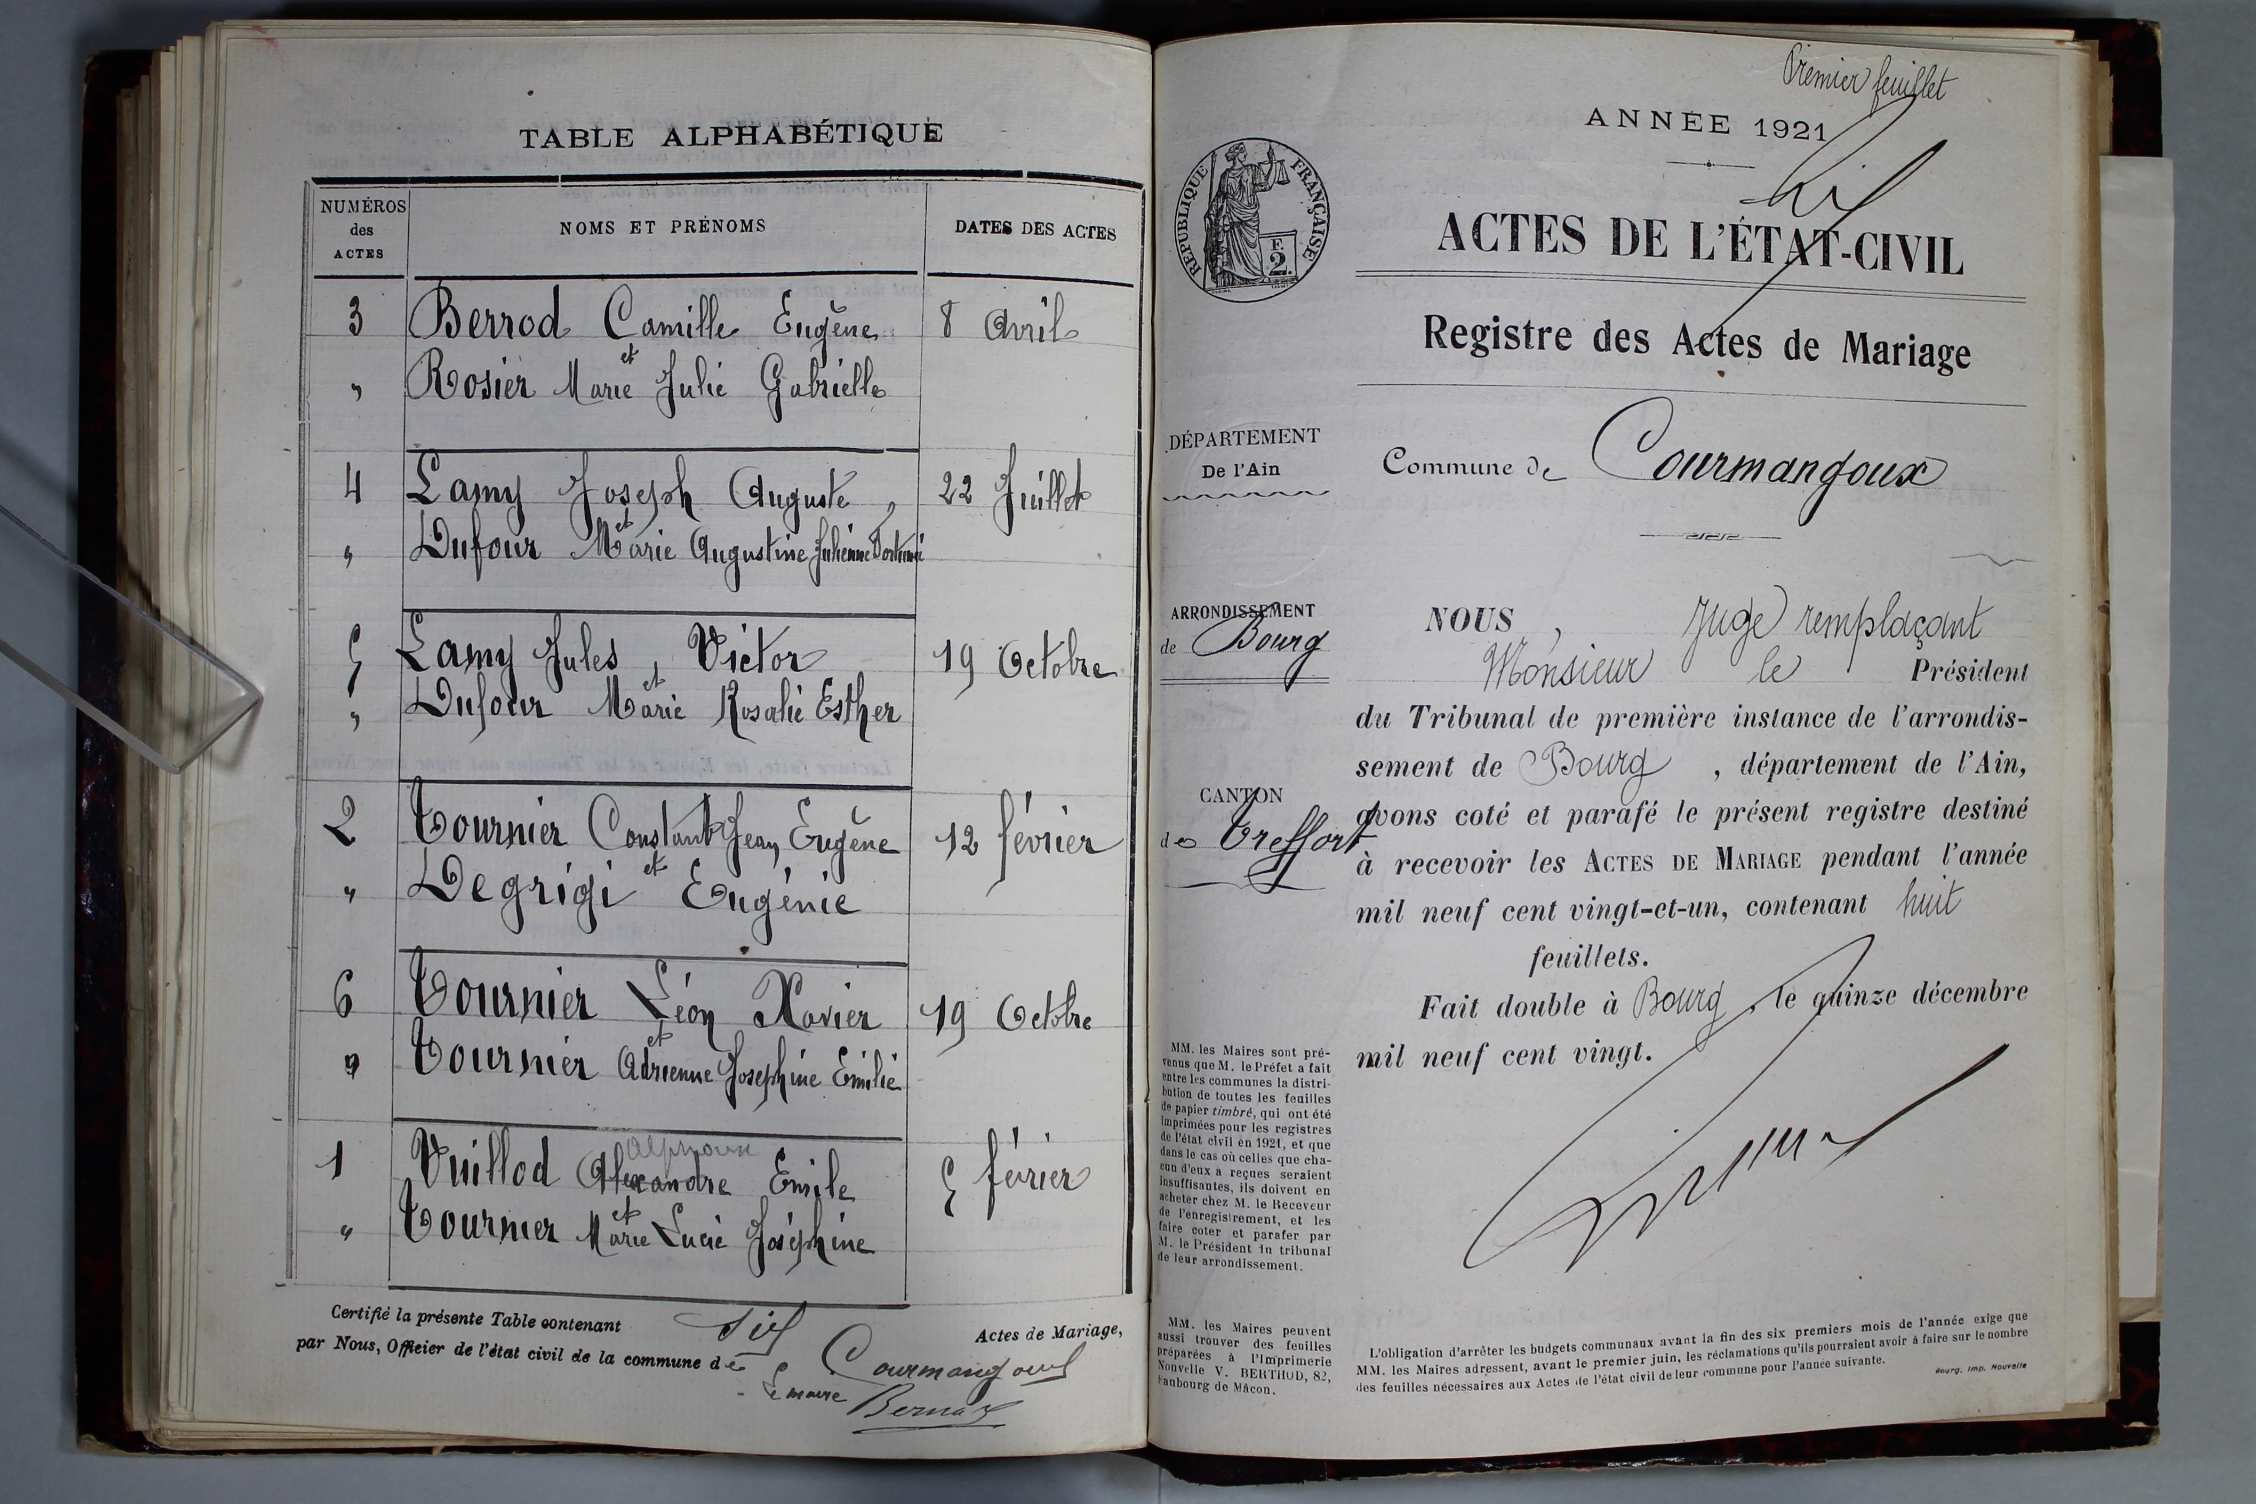 TABLE ALPHABÉTIQUE
NUMÉROS
des
ACTES
NOMS ET PRÉNOMS
DATES DES ACTES
3 Berrod Camille Eugène 8 Avril
et
" Rosier Marie Julie Gabrielle
4 Lamy Joseph Auguste, 22 Juillet
et
" Dufour Marie Augustine Julienne
5 Lamy Jules, Victor 19 Octobre
et
" Dufour Marie Rosalie Esther
2 Tournier Constant Jean Eugène 12 février
et
" Degrigi Eugénie
6 Tournier Léon Xavier 19 Octobre
et
" Tournier Adrienne Joséphine Emilie
Alphonse
1 Vuillod Alexandre Emile 5 février
et
" Tournier Marie Lucie Joséphine
Certifié la présente Table contenant six Actes de Mariage,
par Nous, Officier de l'état civil de la commune de Courmangoux
Le maire
Premier feuillet
ANNÉE 1921
RÉPUBLIQUE FRANÇAISE
F.
2
ACTES DE L'ÉTAT-CIVIL
Registre des Actes de Mariage
DÉPARTEMENT
De l'Ain
Commune de Courmangoux
ARRONDISSEMENT
de Bourg
CANTON
de Treffort
NOUS, Juge remplaçant
Monsieur le Président
du Tribunal de première instance de l'arrondis-
sement de Bourg, département de l'Ain,
avons coté et parafé le présent registre destiné
à recevoir les ACTES DE MARIAGE pendant l'année
mil neuf cent vingt-et-un, contenant huit
feuillets.
Fait double à Bourg, le quinze décembre
mil neuf cent vingt.
MM. les Maires sont pré-
venus que M. le Préfet a fait
entre les communes la distri-
bution de toutes les feuilles
de papier timbré, qui ont été
imprimées pour les registres
de l'état civil en 1921, et que
dans le cas où celles que cha-
cun d'eux a reçues seraient
insuffisantes, ils doivent en
acheter chez M. le Receveur
de l'enregistrement, et les
faire coter et parafer par
M. le Président du tribunal
de leur arrondissement.
MM. les Maires peuvent
aussi trouver des feuilles
préparées à l'Imprimerie
Nouvelle V. BERTHOD, 82,
Faubourg de Mâcon.
L'obligation d'arrêter les budgets communaux avant la fin des six premiers mois de l'année exige que
MM. les Maires adressent, avant le premier juin, les réclamations qu'ils pourraient avoir à faire sur le nombre
des feuilles nécessaires aux Actes de l'état civil de leur commune pour l'année suivante.
Bourg, Imp. Nouvelle